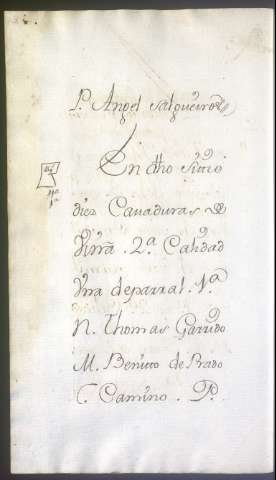 P. Angel Salgueiro
En dho Sitio
diez Cavaduras de
Viña 2.ª Calidad
Una de parral 1.ª
N. Thomas Garrido
M. Benito de Prado
C. Camino . P.